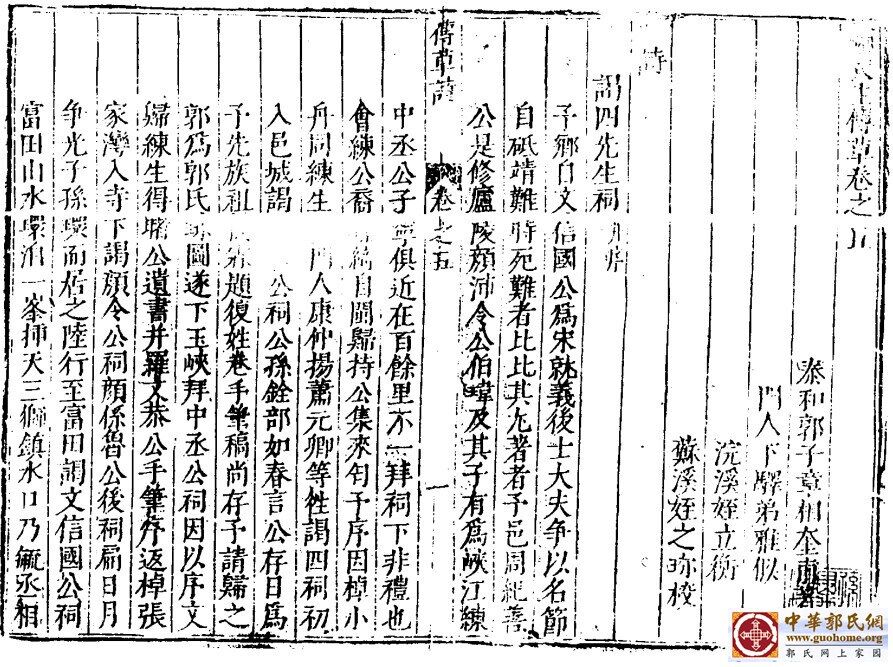 傳草卷之五
泰和郭子章相奎甫著
門人卞驛弟雅似
浣溪姪立衡
蘇溪姪之珍校
詩
謁四先生祠
予鄉自文信國公為宋就義後士大夫爭以名節
自砥靖難時死難者比比其尤著者予邑周紀善
公是修廬陵顏沛令公伯瑋及其子有為峽江練
傳草詩 卷之五 一
中丞公子寧俱近在百餘里不一拜祠下非禮也
會練公裔自閩歸持公集來匄予序因棹小
舟同練生 門人康仲揚蕭元卿等往謁四祠初
入邑城謁 公祠公孫銓部如春言公存日為
予先族祖 題復姓卷手筆稿尚存予請歸之
郭為郭氏 圖遂下玉峽拜中丞公祠因以序文
歸練生得 公遺書并羅文恭公手筆序返棹張
家灣入寺下謁顏令公祠顏係魯公後祠扁日月
爭光子孫環而居之陸行至富田謁文信國公祠
富田山水環泊一峯挿天三獅鎮水口乃毓丞相
中華郭氏網
www.guohome.org
郭氏网上家园